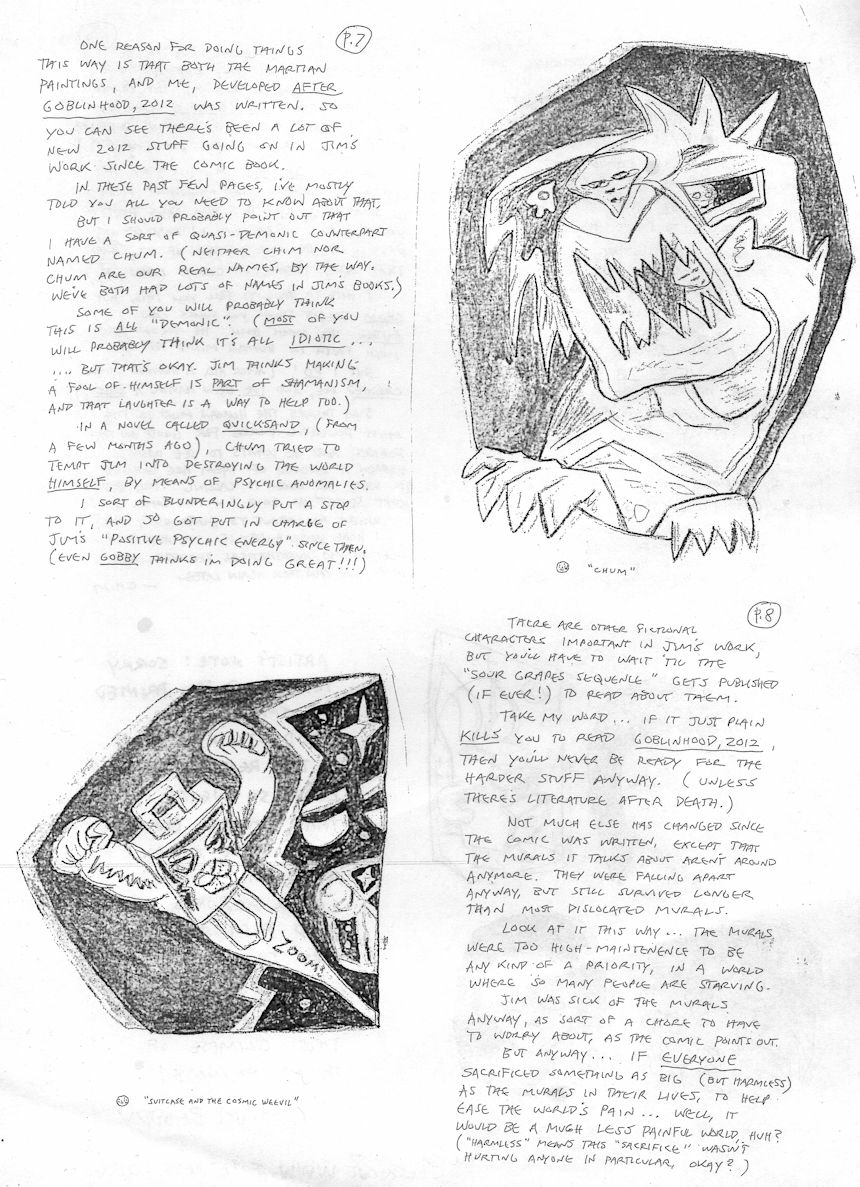 P.7
ONE REASON FOR DOING THINGS
THIS WAY IS THAT BOTH THE MARTIAN
PAINTINGS, AND ME, DEVELOPED AFTER
GOBLINHOOD, 2012 WAS WRITTEN. SO
YOU CAN SEE THERE'S BEEN A LOT OF
NEW 2012 STUFF GOING ON IN JIM'S
WORK SINCE THE COMIC BOOK.
IN THESE PAST FEW PAGES, I'VE MOSTLY
TOLD YOU ALL YOU NEED TO KNOW ABOUT THAT,
BUT I SHOULD PROBABLY POINT OUT THAT
I HAVE A SORT OF QUASI-DEMONIC COUNTERPART
NAMED CHUM. (NEITHER CHIM NOR
CHUM ARE OUR REAL NAMES, BY THE WAY.
WE'VE BOTH HAD LOTS OF NAMES IN JIM'S BOOKS.)
SOME OF YOU WILL PROBABLY THINK
THIS IS ALL "DEMONIC". (MOST OF YOU
WILL PROBABLY THINK IT'S ALL IDIOTIC...
.... BUT THAT'S OKAY. JIM THINKS MAKING
A FOOL OF HIMSELF IS PART OF SHAMANISM,
AND THAT LAUGHTER IS A WAY TO HELP TOO.)
IN A NOVEL CALLED QUICKSAND, (FROM
A FEW MONTHS AGO), CHUM TRIED TO
TEMPT JIM INTO DESTROYING THE WORLD
HIMSELF, BY MEANS OF PSYCHIC ANOMALIES.
I SORT OF BLUNDERINGLY PUT A STOP
TO IT, AND SO GOT PUT IN CHARGE OF
JIM'S "POSITIVE PSYCHIC ENERGY" SINCE THEN.
(EVEN GOBBY THINKS I'M DOING GREAT!!!)
"CHUM"
ZOOM!
"SUITCASE AND THE COSMIC WEEVIL"
P.8
THERE ARE OTHER FICTIONAL
CHARACTERS IMPORTANT IN JIM'S WORK,
BUT YOU'LL HAVE TO WAIT 'TIL THE
"SOUR GRAPES SEQUENCE" GETS PUBLISHED
(IF EVER!) TO READ ABOUT THEM.
TAKE MY WORD... IF IT JUST PLAIN
KILLS YOU TO READ GOBLINHOOD, 2012,
THEN YOU'LL NEVER BE READY FOR THE
HARDER STUFF ANYWAY. (UNLESS
THERE'S LITERATURE AFTER DEATH.)
NOT MUCH ELSE HAS CHANGED SINCE
THE COMIC WAS WRITTEN, EXCEPT THAT
THE MURALS IT TALKS ABOUT AREN'T AROUND
ANYMORE. THEY WERE FALLING APART
ANYWAY, BUT STILL SURVIVED LONGER
THAN MOST DISLOCATED MURALS.
LOOK AT IT THIS WAY... THE MURALS
WERE TOO HIGH-MAINTENENCE TO BE
ANY KIND OF A PRIORITY, IN A WORLD
WHERE SO MANY PEOPLE ARE STARVING.
JIM WAS SICK OF THE MURALS
ANYWAY, AS SORT OF A CHORE TO HAVE
TO WORRY ABOUT, AS THE COMIC POINTS OUT.
BUT ANYWAY... IF EVERYONE
SACRIFICED SOMETHING AS BIG (BUT HARMLESS)
AS THE MURALS IN THEIR LIVES, TO HELP
EASE THE WORLD'S PAIN... WELL, IT
WOULD BE A MUGH LESS PAINFUL WORLD, HUH?
("HARMLESS" MEANS THIS "SACRIFICE" WASN'T
HURTING ANYONE IN PARTICULAR, OKAY?)